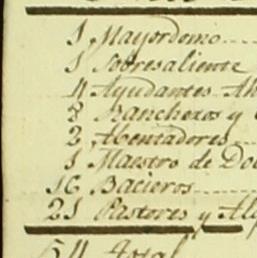 1 Mayordomo
1 Sobresaliente
4 Ayudantes
8 Rancheros y
2 Abentadores
1 Maestro de
16 Bacieros
21 Pastores y
54 Total